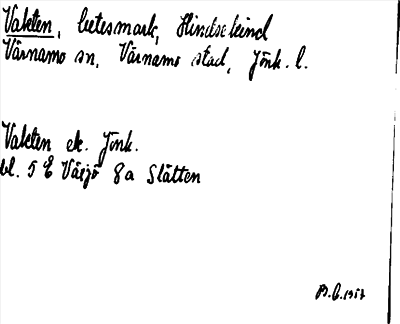 Vakten, betesmark, Hindsekind
Värnamo sn, Värnamo stad, Jönk. l.
Vakten ek. Jönk.
bl. 5 E Växjö 8a Slätten
B.G. 1957